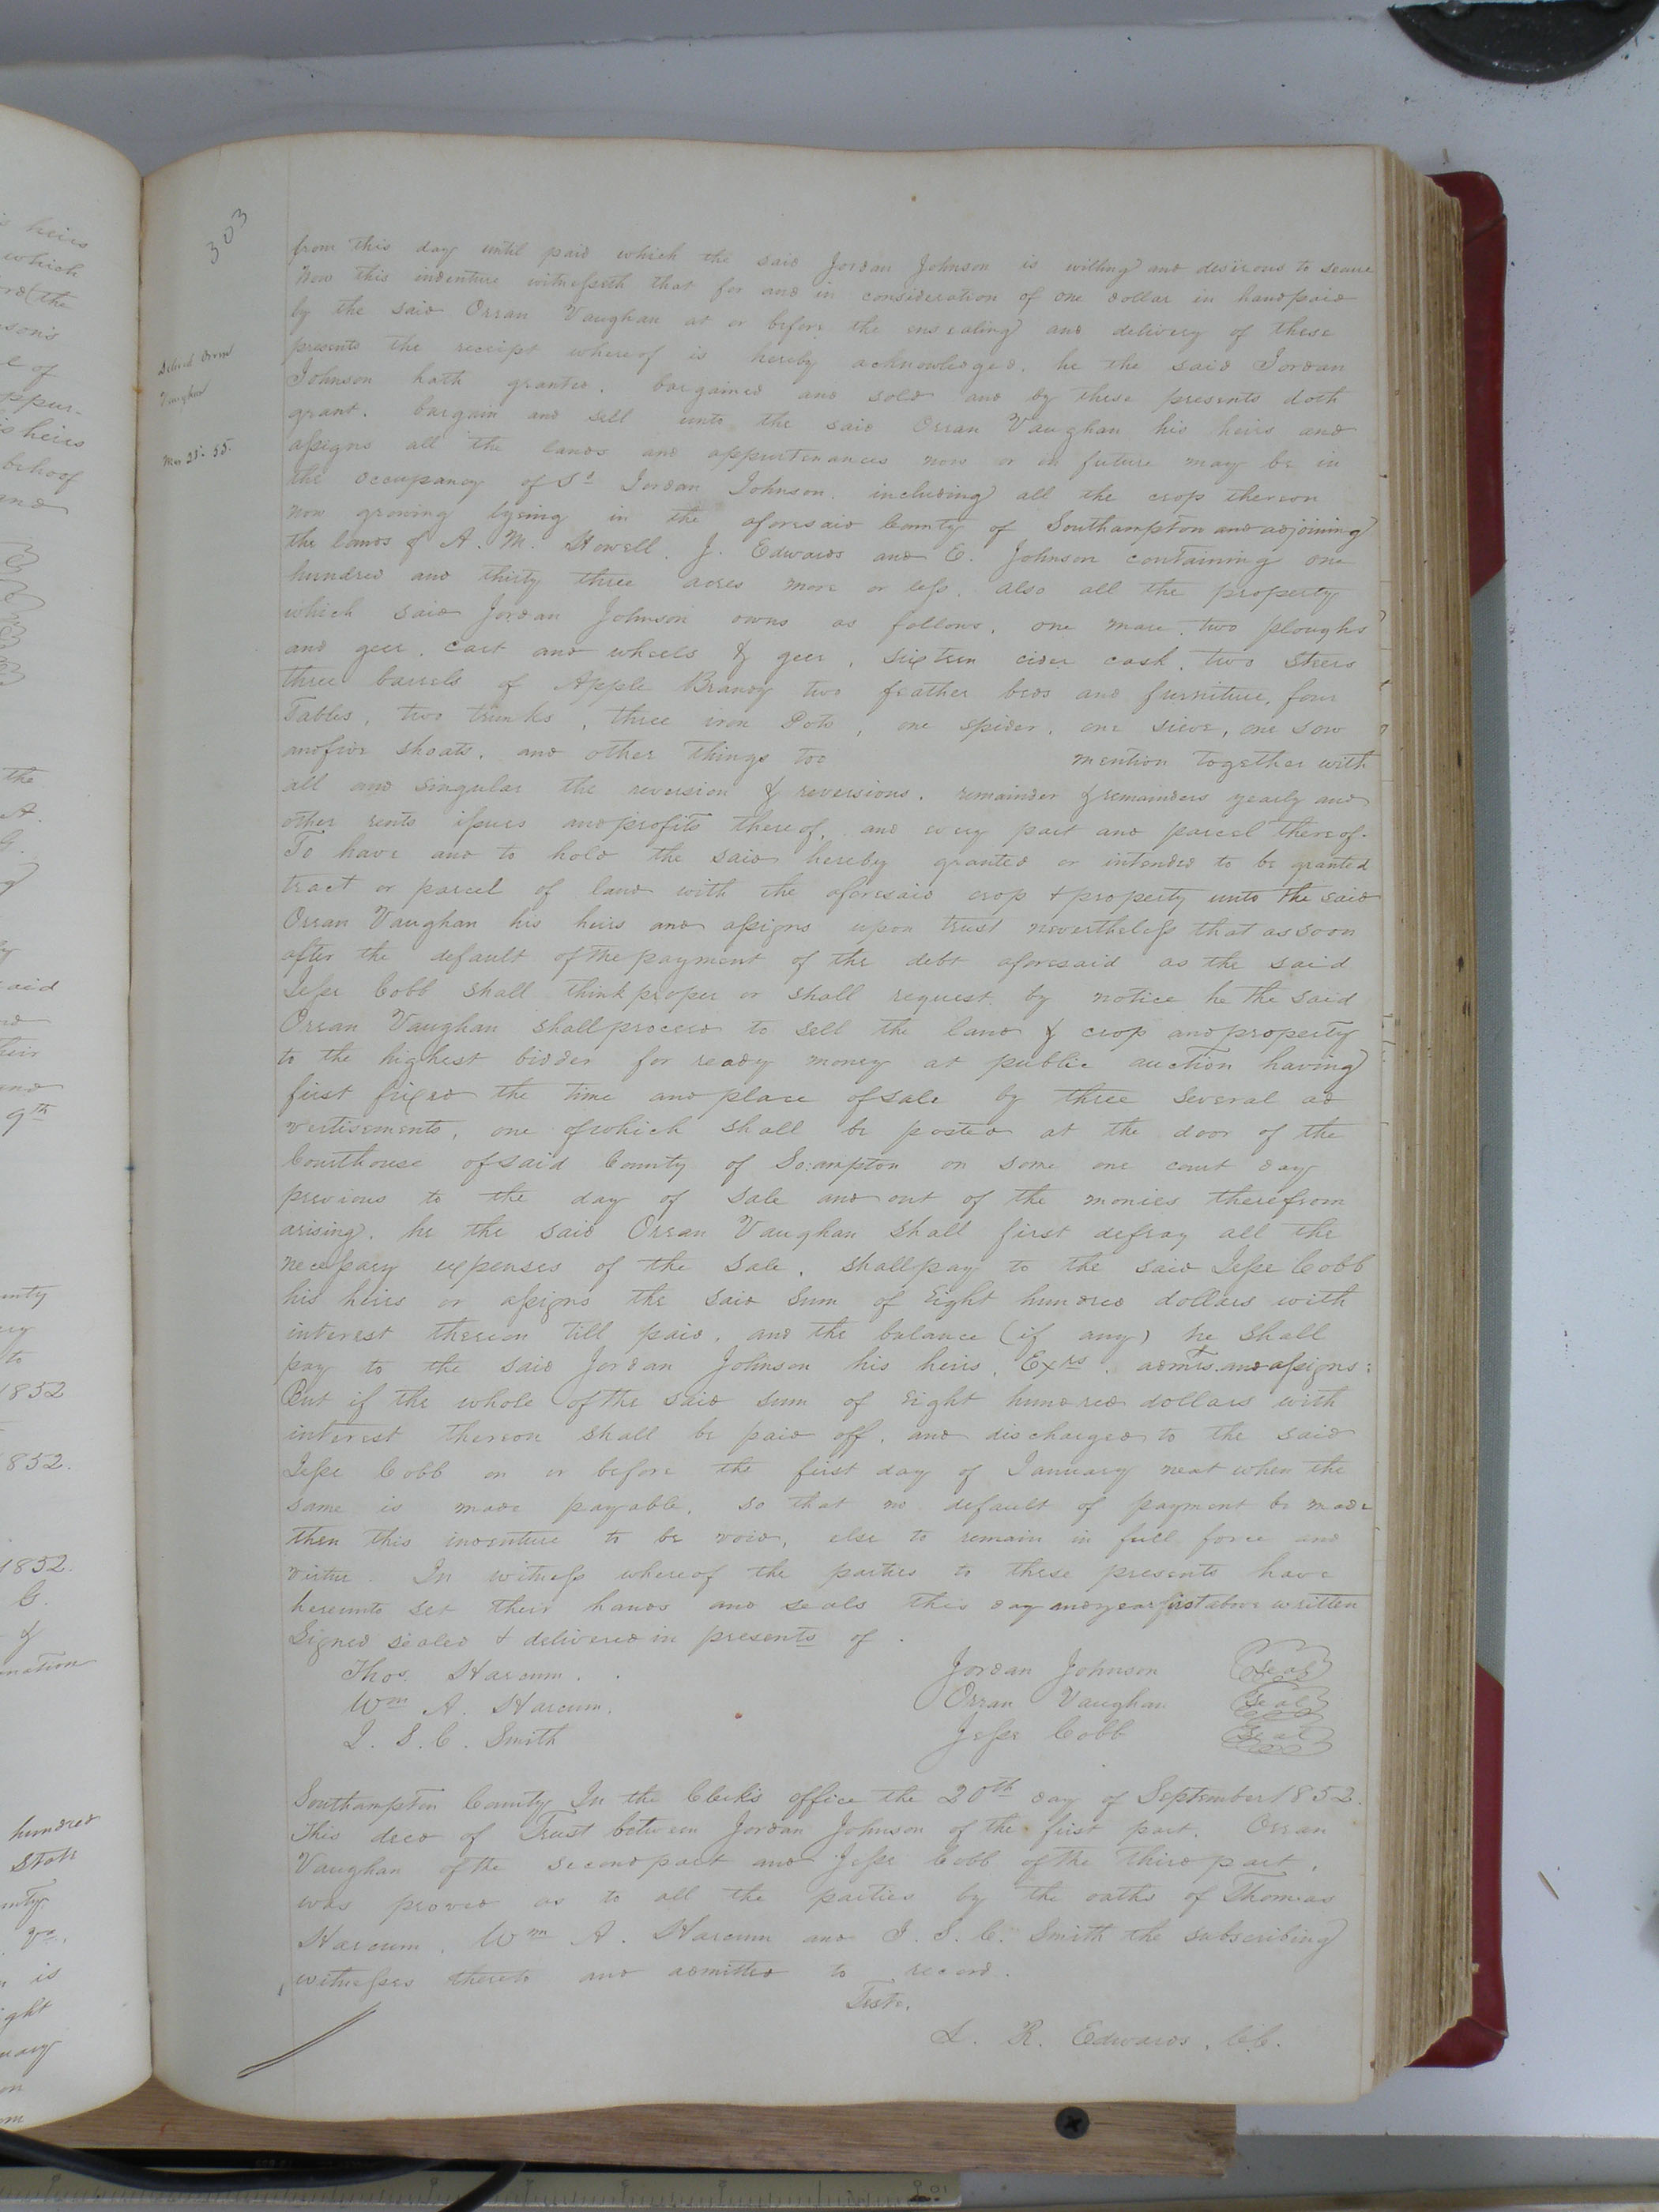 303
from this day until paid which the said Jordan Johnson is willing and desirous to secure
Now this indenture witnesseth that for and in consideration of one dollar in hand paid
by the said Orran Vaughan at or before the ensealing and delivery of these
presents the receipt whereof is hereby acknowledged. he the said Jordan
Johnson hath granted. bargained and sold and by these presents doth
grant. bargain and sell unto the said Orran Vaughan his heirs and
assigns all the lands and appurtenances now or in future may be in
the occupancy of Sd Jordan Johnson. including all the crop thereon
now growing lyeing in the aforesaid County of Southampton and adjoining
the lands of A. M. Howell. J. Edwards and E. Johnson containing one
hundred and thirty three acres more or less. also all the property
which said Jordan Johnson owns as follows, one mare. two ploughs
and geer. Cart and wheels & geer, sixteen cider cask. two steers
three barrels of Apple Brandy two feather beds and furniture, four
Tables, two trunks, three iron Pots, one spider. one sieve, one sow
and five shoats. and other things too mention together with
all and singular the reversion & reversions. remainder & remainders yearly and
other rents issues and profits thereof. and every part and parcel thereof.
To have and to hold the said hereby granted or intended to be granted
tract or parcel of land with the aforesaid crop & property unto the said
Orran Vaughan his heirs and assigns upon trust nevertheless that as soon
after the default of the payment of the debt aforesaid as the said
Jesse Cobb shall think proper or shall request by notice he the said
Orran Vaughan shall proceed to sell the land & crop and property
to the highest bidder for ready money at public auction having
first fixed the time and place of sale by three several ad
vertisements, one of which shall be posted at the door of the
Courthouse of said County of So:ampton on some one court day
previous to the day of sale and out of the monies therefrom
arising. he the said Orran Vaughan shall first defray all the
necessary expenses of the sale. shall pay to the said Jesse Cobb
his heirs or assigns the said sum of Eight hundred dollars with
interest thereon till paid. and the balance (if any) he shall
pay to the said Jordan Johnson his heirs, Exrs. admrs. and assigns:
But if the whole of the said sum of Eight hundred dollars with
interest thereon shall be paid off. and discharged to the said
Jesse Cobb on or before the first day of January next when the
same is made payable. so that no default of payment be made
then this indenture to be void, else to remain in full force and
virtue. In witness whereof the parties to these presents have
hereunto set their hands and seals this day and year first above written
Signed sealed & delivered in presents of.
Thos. Harcum. Jordan Johnson Seal
Wm A. Harcum. Orran Vaughan Seal
J. S. C. Smith Jesse Cobb Seal
Southampton County In the Clerk's office the 20th day of September 1852.
This deed of Trust between Jordan Johnson of the first part. Orran
Vaughan of the second part and Jesse Cobb of the third part.
was proved as to all the parties by the oaths of Thomas
Harcum, Wm A. Harcum and J. S. C. Smith the subscribing
witnesses thereto and admitted to record.
Teste.
L. R. Edwards, C.C.